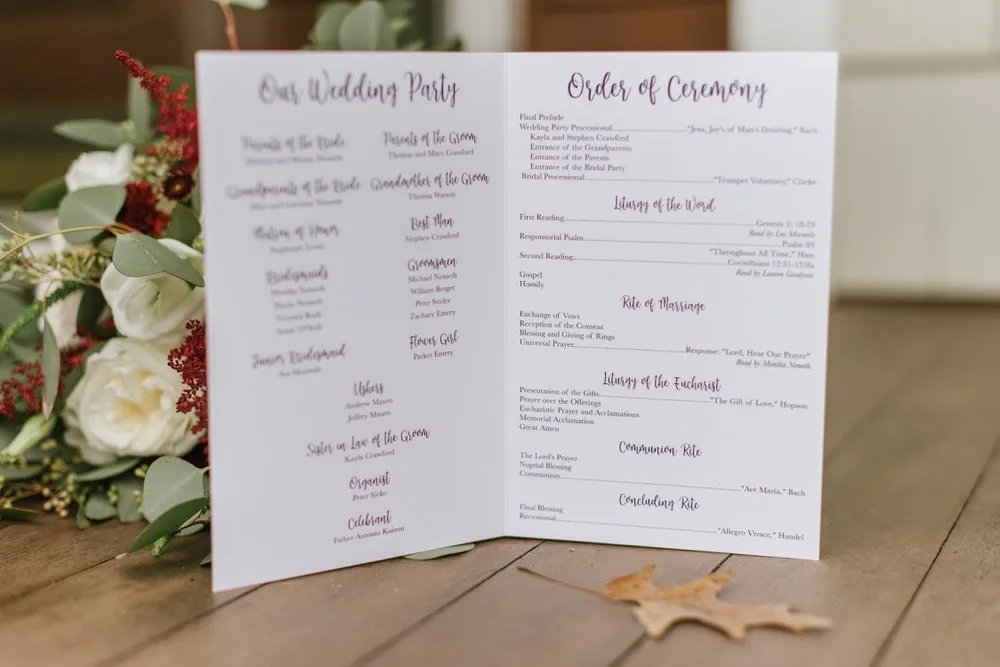 Our Wedding Party
Parents of the Bride
Parents of the Groom
Thomas and Mary Crawford
Grandparents of the Bride
Grandmother of the Groom
Theresa Watson
Matron of Honor
Best Man
Stephen Crawford
Bridesmaids
Groomsmen
Michael Nemeth
William Berger
Peter Snider
Zachary Emery
Junior Bridesmaid
Flower Girl
Parker Emery
Ushers
Andrew Mauro
Jeffery Mauro
Sister in Law of the Groom
Kayla Crawford
Organist
Peter Sicko
Celebrant
Father Antonio Kuizon
Order of Ceremony
Final Prelude
Wedding Party Processional "Jesu, Joy's of Man's Desiring," Bach
Kayla and Stephen Crawford
Entrance of the Grandparents
Entrance of the Parents
Entrance of the Bridal Party
Bridal Processional "Trumpet Voluntary," Clarke
Liturgy of the Word
First Reading Genesis 2: 18-24
Read by
Responsorial Psalm Psalm
"Throughout All Time," Haas
Second Reading Corinthians 12:31-13:8a
Read by Lauren
Gospel
Homily
Rite of Marriage
Exchange of Vows
Reception of the Consent
Blessing and Giving of Rings
Universal Prayer Response: "Lord, Hear Our Prayer"
Read by Monika Nemeth
Liturgy of the Eucharist
Presentation of the Gifts "The Gift of Love," Hopson
Prayer over the Offerings
Eucharistic Prayer and Acclamations
Memorial Acclamation
Great Amen
Communion Rite
The Lord's Prayer
Nuptial Blessing
Communion "Ave Maria," Bach
Concluding Rite
Final Blessing
Recessional "Allegro Vivace," Handel